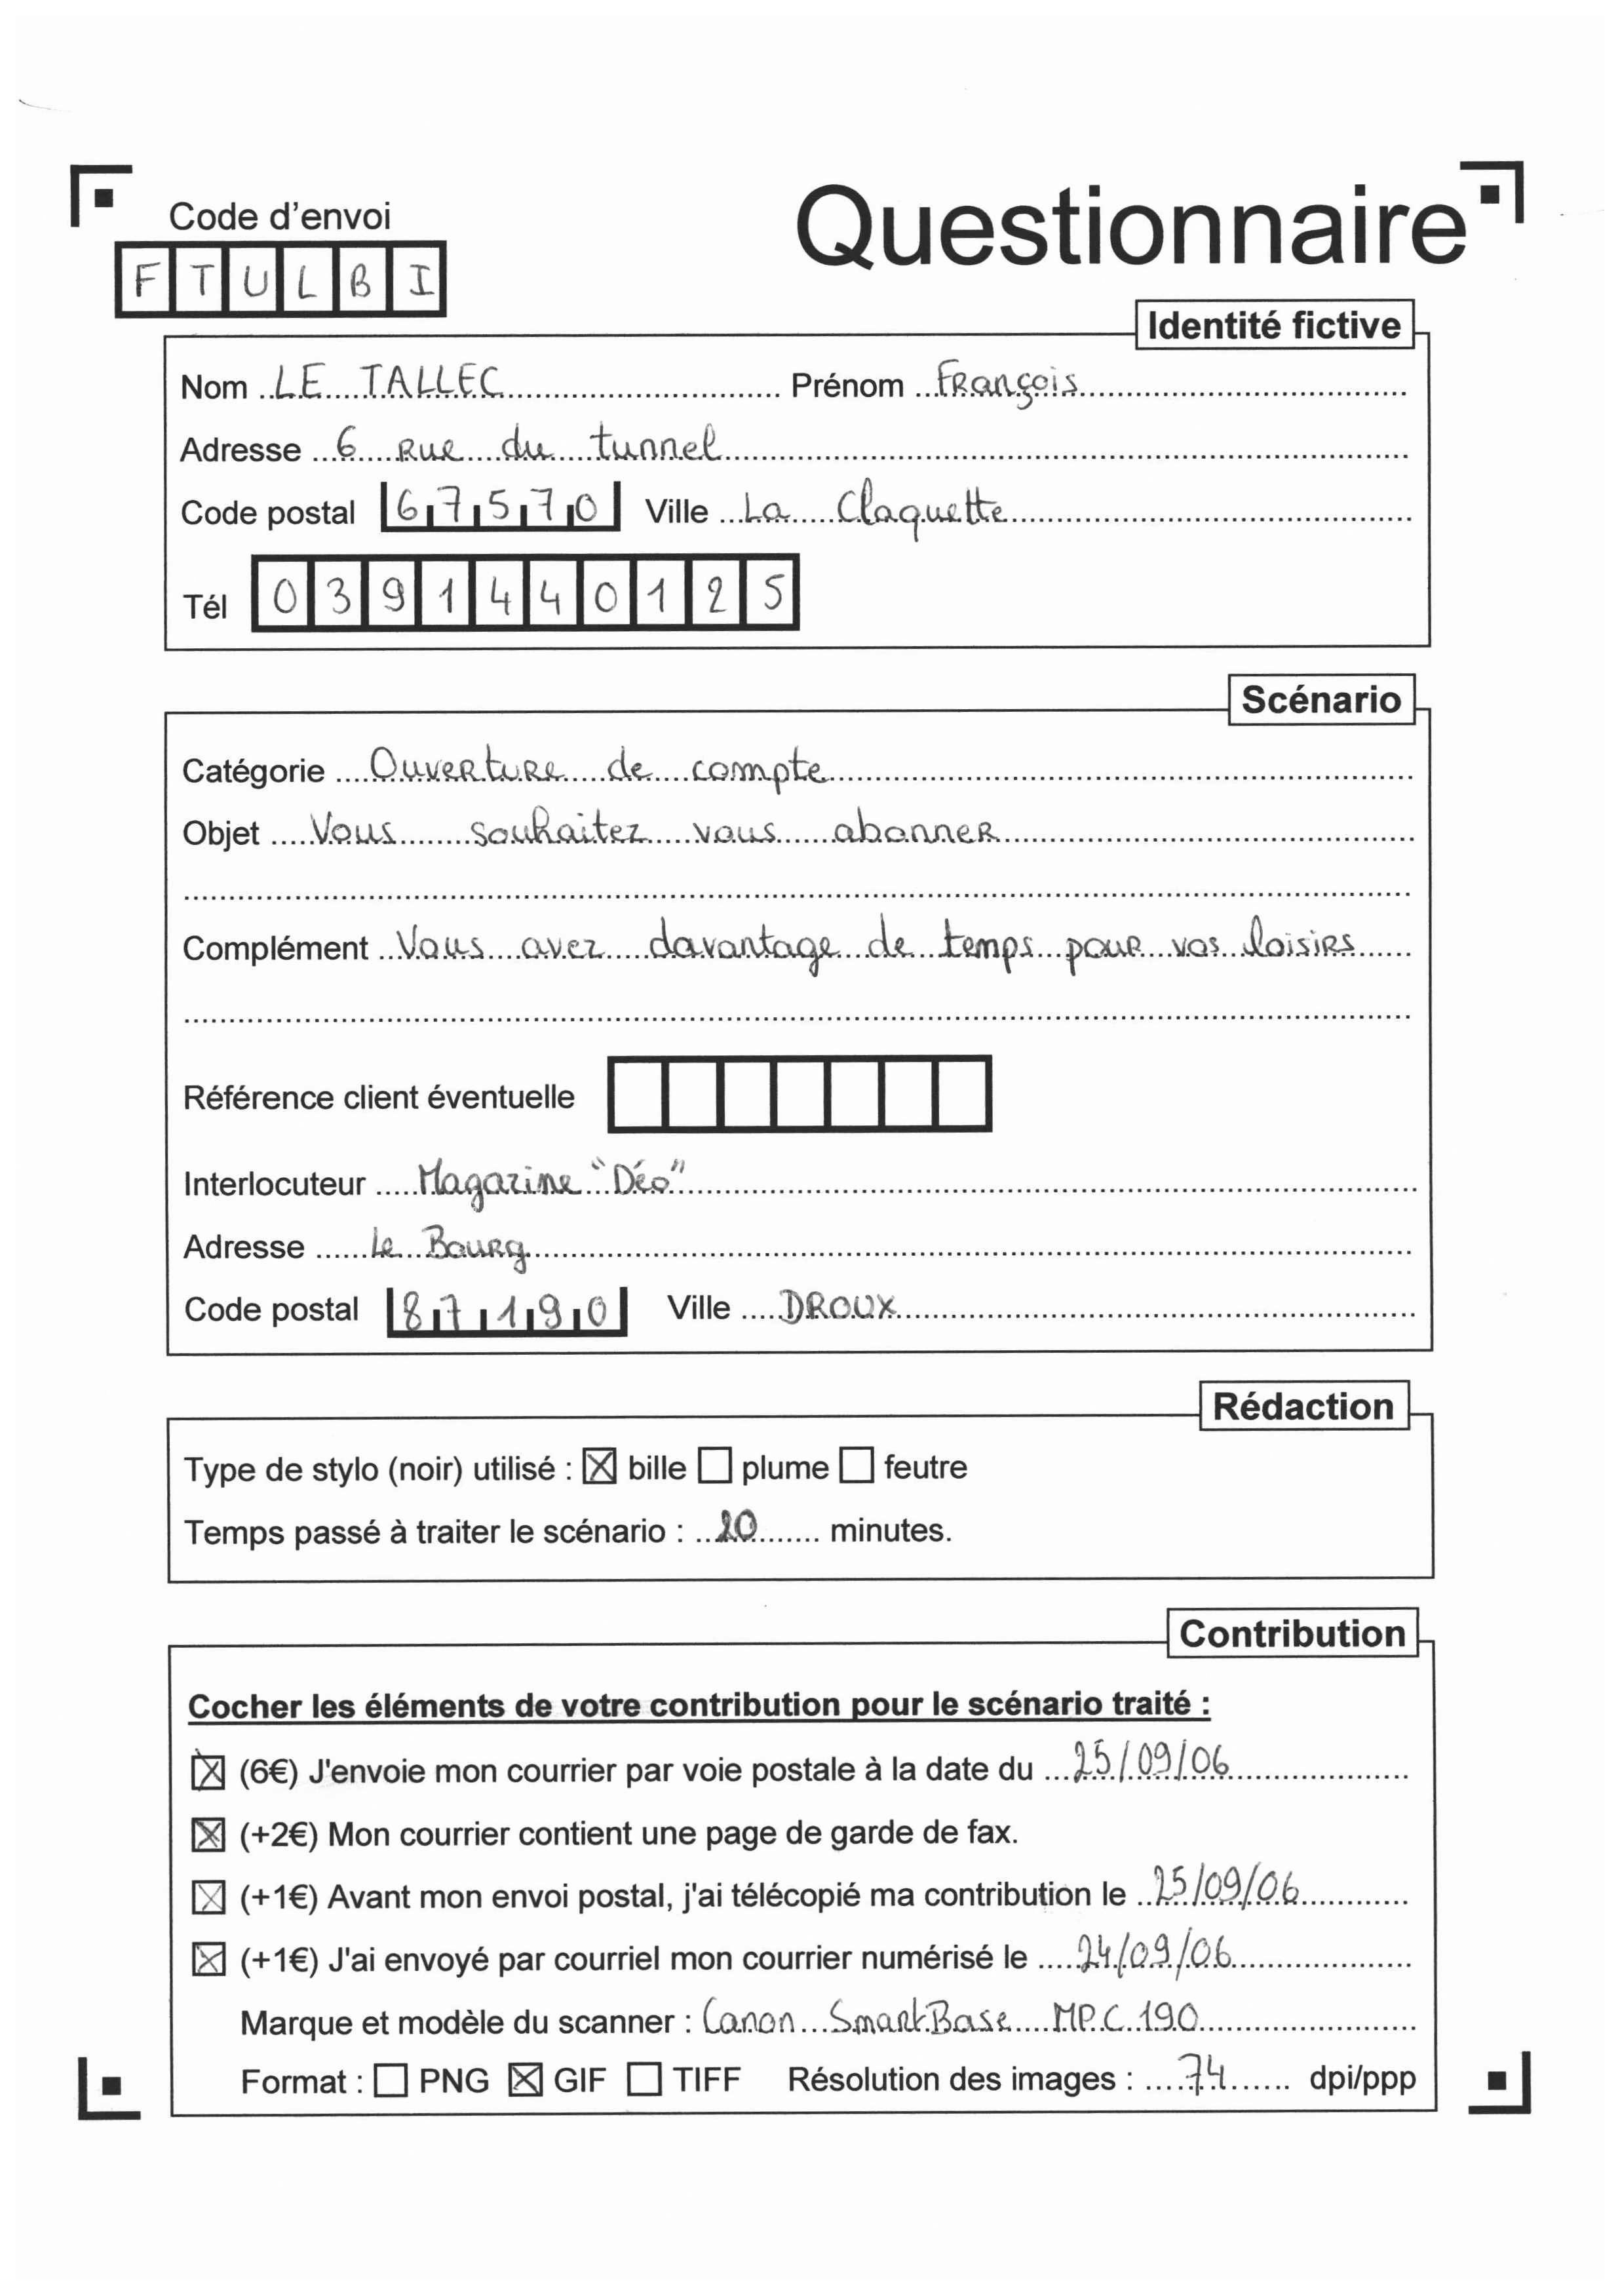 Code d'envoi
Questionnaire
F T U L B I
Identité fictive
Nom LE TALLEC Prénom François
Adresse 6 Rue du tunnel
Code postal 67570 Ville La Claquette
Tél 0391440125
Scénario
Catégorie Ouverture de compte
Objet Vous souhaitez vous abonner
Complément Vous avez davantage de temps pour vos loisirs
Référence client éventuelle
Interlocuteur Magazine "Déo"
Adresse Le Bourg
Code postal 87190 Ville DROUX
Rédaction
Type de stylo (noir) utilisé : ☒ bille ☐ plume ☐ feutre
Temps passé à traiter le scénario : 20 minutes.
Contribution
Cocher les éléments de votre contribution pour le scénario traité :
☒ (6€) J'envoie mon courrier par voie postale à la date du 25/09/06
☒ (+2€) Mon courrier contient une page de garde de fax.
☒ (+1€) Avant mon envoi postal, j'ai télécopié ma contribution le 25/09/06
☒ (+1€) J'ai envoyé par courriel mon courrier numérisé le 24/09/06
Marque et modèle du scanner : Canon SmartBase MPC 190
Format : ☐ PNG ☒ GIF ☐ TIFF Résolution des images : 74 dpi/ppp